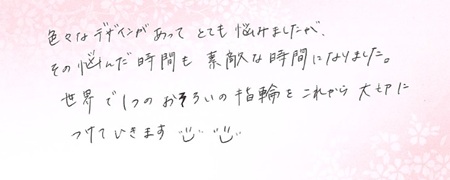 色々なデザインがあって とても悩みましたが、
その悩んだ時間も 素敵な時間になりました。
世界で1つの おそろいの指輪を これから 大切に
つけていきます